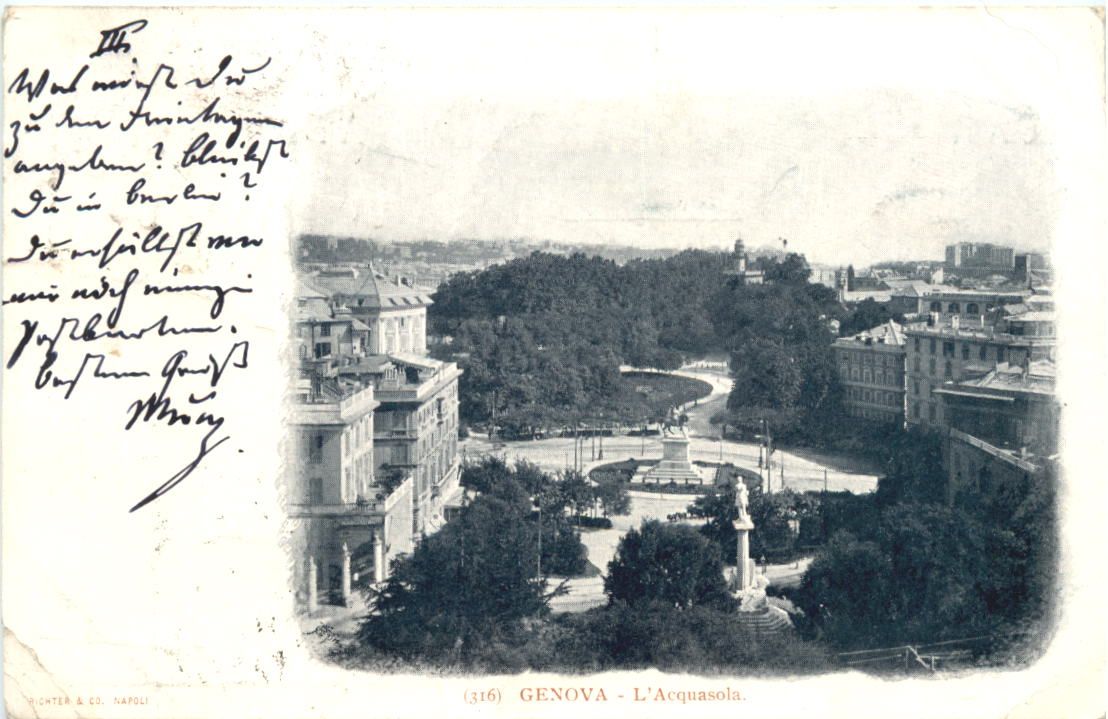 III.
Was wirst Du
zu den Feiertagen
angeben? bleibst
Du in Berlin?
Du erhältst von
mir noch einige
Postkarten.
besten Gruß
(316) GENOVA - L'Acquasola.
RICHTER & CO. NAPOLI